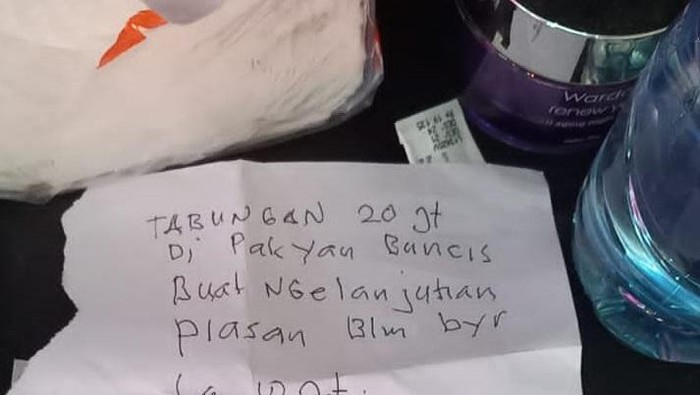 Warda
renew y
TABUNGAN 20 jt
Di Pak Yan Buncis
Buat NGelanjutian
plasan Blm byr